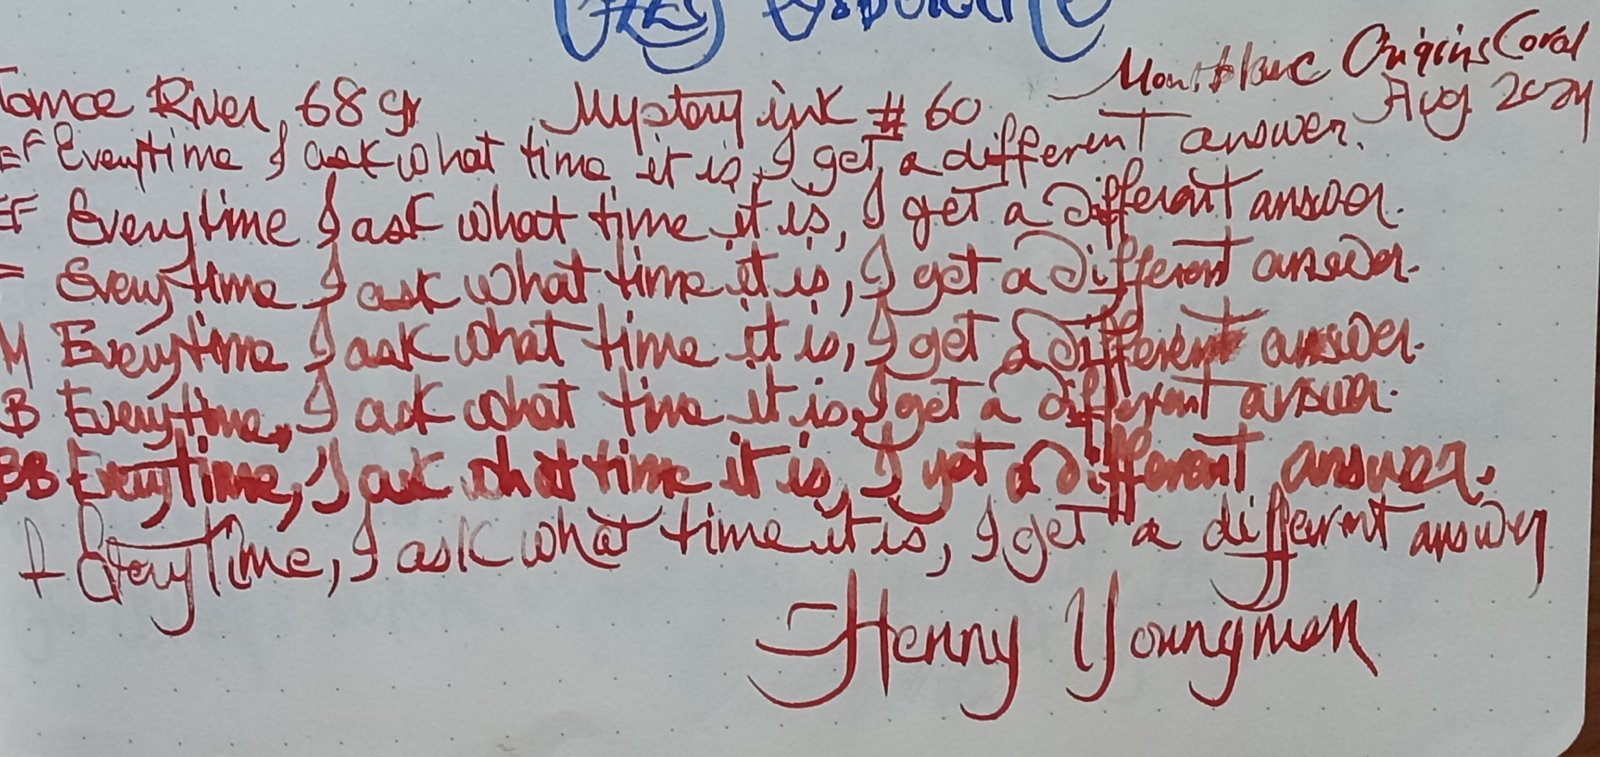 Tomoe River 68 gr Mystery ink # 60 Montblanc Origins Coral
Aug 2024
EF Everytime I ask what time it is, I get a different answer.
EF Everytime I ask what time it is, I get a different answer.
F Everytime I ask what time it is, I get a different answer.
M Everytime I ask what time it is, I get a different answer.
B Everytime, I ask what time it is, I get a different answer.
BB Everytime, I ask what time it is, I get a different answer.
F Everytime, I ask what time it is, I get a different answer
Henny Youngman